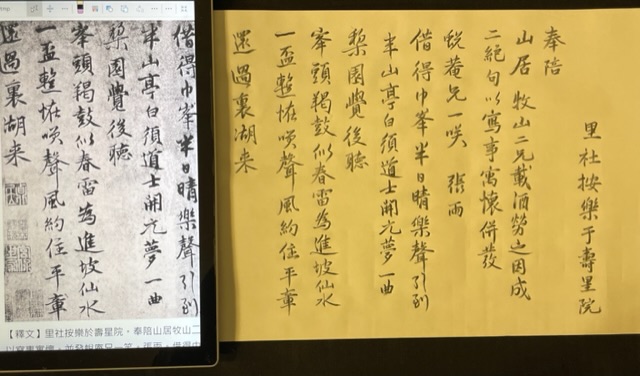 里社按樂于壽星院
奉陪
山居 牧山二兄載酒勞之因成
二絕句以寫事寓懷併發
蛻菴兄一咲 張雨
借得巾峯半日晴樂聲引到
半山亭白須道士開元夢一曲
棃園覺後聽
峯頭羯鼓似春雷為進坡仙水
一盃整恠咲聲風約住平章
還過裏湖来
借得巾峯半日晴樂聲引到
半山亭白須道士開元夢一曲
棃園覺後聽
峯頭羯鼓似春雷為進坡仙水
一盃整恠咲聲風約住平章
還過裏湖来
【釋文】里社按樂於壽星院，奉陪山居牧山二